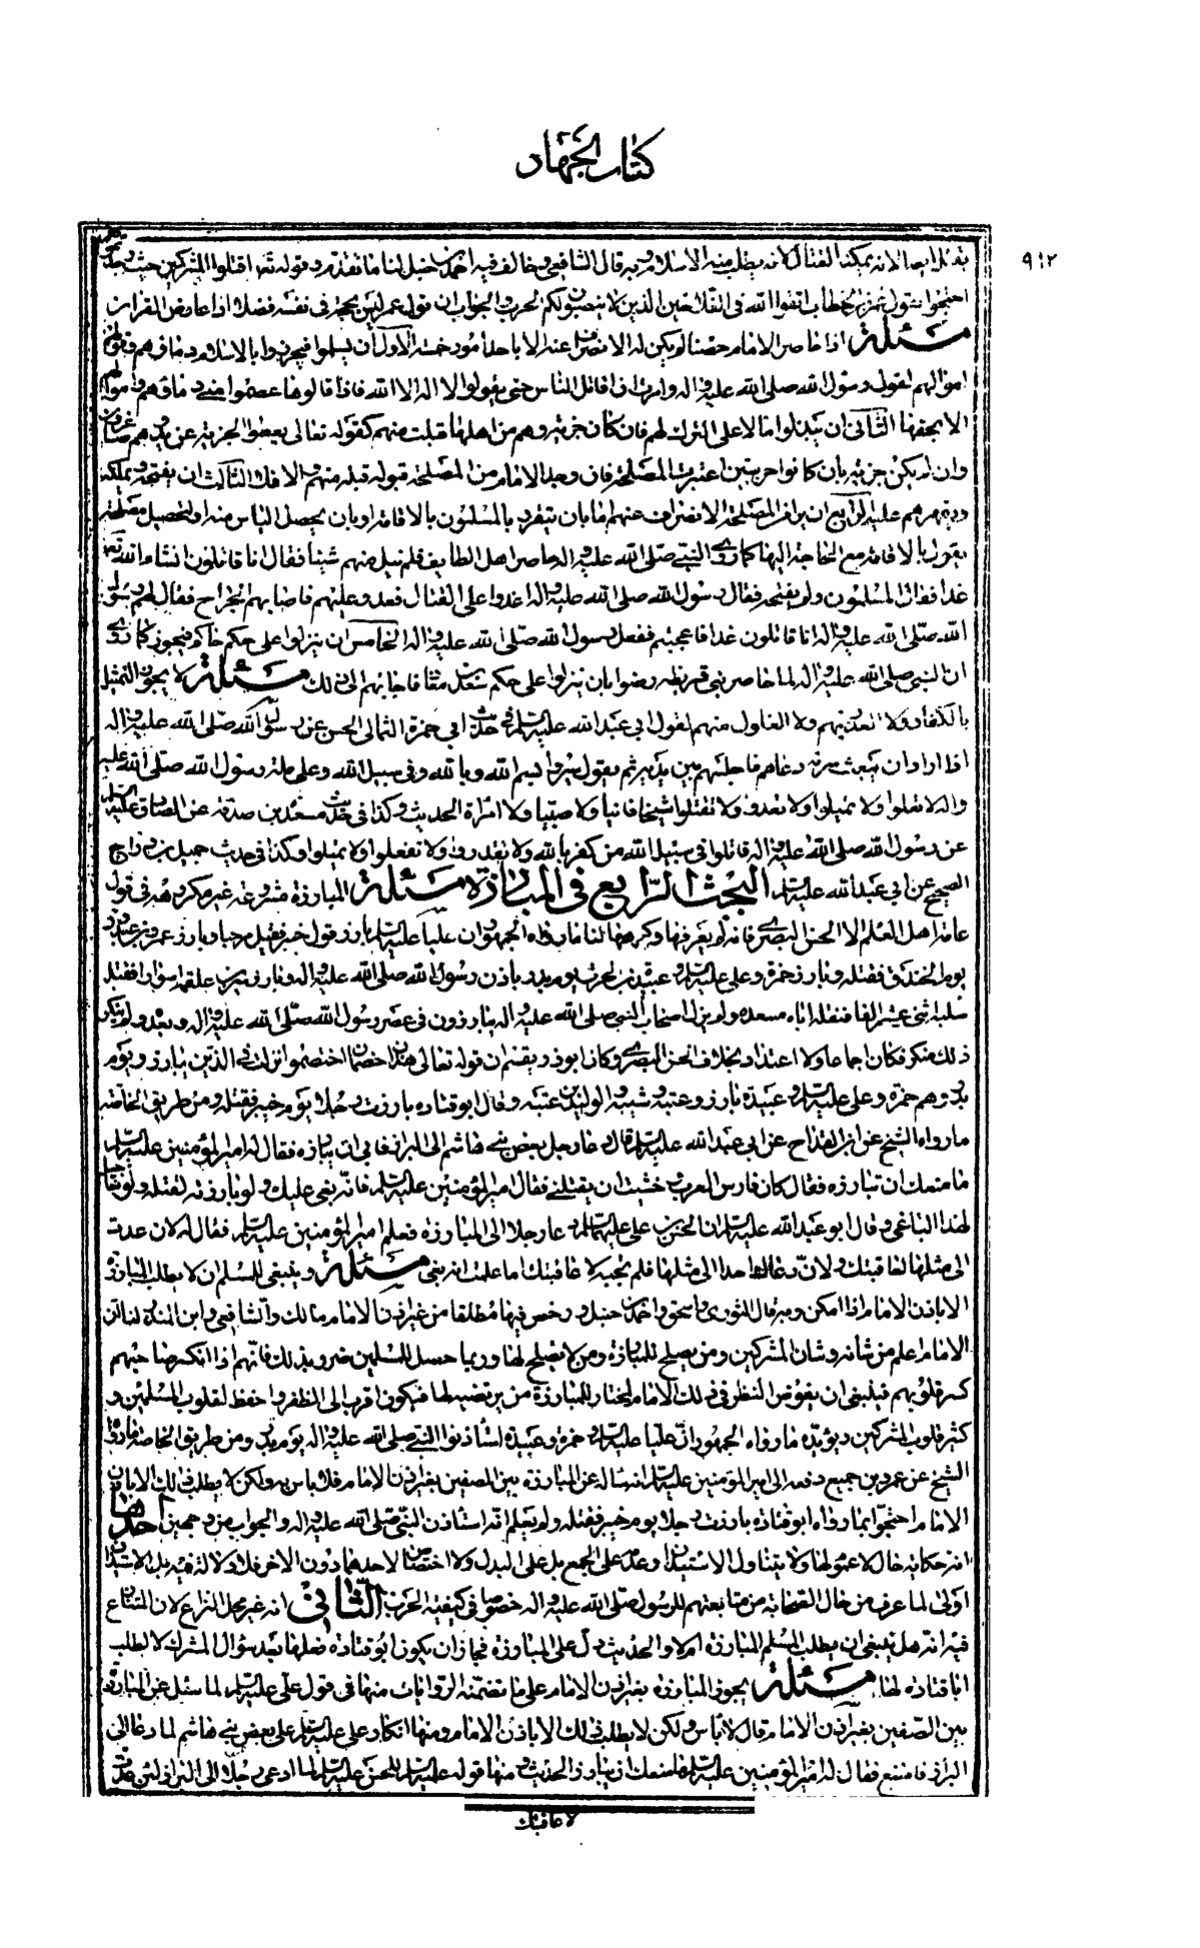 كتاب الجهاد
٩١٢
يقاتل ابدا لانه يمكنه القتال لانه يطلب منه الاسلام وبه قال الشافعي وخالف فيه احمد بن حنبل لنا ما تقدم وقوله تعالى اقتلوا المشركين حيث وجد
احتجوا بقول عمر بن الخطاب اتقوا الله في الفلاحين الذين لا ينصبون لكم الحرب والجواب ان قول عمر ليس بحجة في نفسه فضلا اذا عارض القرآن
مسئلة اذا حاصر الامام حصنا لم يكن له الانصراف عنه الا باحد امور خمسة الاول ان يسلموا فيحرزوا بالاسلام دماءهم و
اموالهم لقول رسول الله صلى الله عليه واله وامرت ان اقاتل الناس حتى يقولوا لا اله الا الله فاذا قالوها عصموا مني دماءهم واموالهم
الا بحقها الثاني ان يبذلوا مالا على الترك لهم فان كان جزية وهم من اهلها قبلت منهم كقوله تعالى يعطوا الجزية عن يد وهم صاغرون
وان لم يكن جزية بان كانوا حربيين اعتبرت المصلحة فان وجد الامام من المصلحة قبوله قبله منهم والا فلا الثالث ان يفتحه ويملكه
ويقهرهم عليه الرابع ان يرى من المصلحة الانصراف عنهم اما بان يتضرر المسلمون بالاقامة او بان يحصل الياس منه او لتحصيل مصلحة
يفوت بالاقامة مع الحاجة اليها كما روى النبي صلى الله عليه واله حاصر اهل الطايف فلم ينل منهم شيئا فقال انا قافلون انشاء الله تعالى
غدا فقال المسلمون ولم يفتحه فقال رسول الله صلى الله عليه واله اغدوا على القتال فغدوا عليهم فاصابهم الجراح فقال لهم رسول
الله صلى الله عليه واله انا قافلون غدا فاعجبهم فقفل رسول الله صلى الله عليه واله الخامس ان ينزلوا على حكم حاكم فيجوز كما روى
ان النبي صلى الله عليه واله لما حاصر بني قريظة رضوا بان ينزلوا على حكم سعد بن معاذ فاجابهم الى ذلك مسئلة لا يجوز التمثيل
بالكفار ولا الغدر بهم ولا الغلول منهم لقول ابي عبد الله عليه السلام في حديث ابي حمزة الثمالي الحسن عن رسول الله صلى الله عليه واله
اذا اراد ان يبعث سرية دعاهم فاجلسهم بين يديه ثم يقول سيروا بسم الله وبالله وفي سبيل الله وعلى ملة رسول الله صلى الله عليه
واله لا تغلوا ولا تمثلوا ولا تغدروا ولا تقتلوا شيخا فانيا ولا صبيا ولا امراة الحديث وكذا في حديث مسعدة بن صدقة عن الصادق عليه السلام
عن رسول الله صلى الله عليه واله قاتلوا في سبيل الله من كفر بالله ولا تغدروا ولا تغلوا ولا تمثلوا وكذا في حديث جميل بن دراج
الصحيح عن ابي عبد الله عليه السلام البحث الرابع في المبارزة مسئلة المبارزة مشروعة غير مكروهة في قول
عامة اهل العلم الا الحسن البصري فانه لم يعرفها وكرهها لنا ما رواه الجمهور ان عليا عليه السلام بارز يوم خيبر فقتل مرحبا وبارز عمرو بن عبد ود
يوم الخندق فقتله وبارز حمزة وعلي عليه السلام وعبيدة بن الحرث يوم بدر باذن رسول الله صلى الله عليه واله وبارز
سلبه اثنى عشر الفا فنفله اياه سعد ولم يزل اصحاب النبي صلى الله عليه واله يبارزون في عصر رسول الله صلى الله عليه واله وبعده ولم ينكر
ذلك منكر فكان اجماعا ولا اعتداد بخلاف الحسن البصري وكان ابو ذر يقسم ان قوله تعالى هذان خصمان اختصموا نزلت في الذين تبارزوا يوم
بدر وهم حمزة وعلي عليه السلام وعبيدة بارزوا عتبة وشيبة والوليد بن عتبة وقال ابو قتادة بارزت رجلا يوم خيبر فقتلته ومن طريق الخاصة
ما رواه الشيخ عن ابن القداح عن ابي عبد الله عليه السلام قال دعا رجل بعض بني هاشم الى البراز فابى ان يبارزه فقال له امير المؤمنين عليه السلام
ما منعك ان تبارزه فقال كان فارس العرب خشيت ان يقتلني فقال امير المؤمنين عليه السلام فانه بغى عليك ولو بارزته لقتلته ولو بغا جبل
لهد الباغي وقال ابو عبد الله عليه السلام ان الحسن بن علي عليهما السلام دعا رجلا الى المبارزة فعلم امير المؤمنين عليه السلام فقال له لان عدت
الى مثلها لعاقبتك ولان دعاك احد الى مثلها فلم تجبه لاعاقبتك اما علمت انه بغي مسئلة وينبغي للمسلم ان لا يطلب المبارزة
الا باذن الامام اذا امكن وبه قال الثوري واسحق واحمد بن حنبل ورخص فيها مطلقا من غير اذن الامام مالك والشافعي وابن المنذر لنا ان
الامام اعلم من شانه وشان المشركين ومن يصلح للمبارزة ومن لا يصلح لها وربما حصل للمسلمين ضرر بذلك فانهم اذا انكسر صاحبهم
كسر قلوبهم فينبغي ان يفوض النظر في ذلك الى الامام ليختار للمبارزة من يرتضيه لها فيكون اقرب الى الظفر واحفظ لقلوب المسلمين و
كسر قلوب المشركين ويؤيده ما رواه الجمهور ان عليا عليه السلام وحمزة وعبيدة استأذنوا النبي صلى الله عليه واله يوم بدر ومن طريق الخاصة ما رواه
الشيخ عن عمرو بن جميع رفعه الى امير المؤمنين عليه السلام انه سأله عن المبارزة بين الصفين بغير اذن الامام فلا باس به ولكن لا يطلب ذلك الا باذن
الامام احتجوا بما رواه ابو قتادة بارزت رجلا يوم خيبر فقتلته ولم يعلم انه استأذن النبي صلى الله عليه واله والجواب من وجهين احدهما
انه حكاية حال لا عموم لها ولا يتناول الاستيذان وعدمه على الجمع بل على البدل ولا اختصاص لاحدهما دون الاخر فلا دلالة فيه بل الاستيذان
اولى لما عرف من حال الصحابة من متابعتهم للرسول صلى الله عليه واله خصوصا في كيفية الحرب الثاني انه غير محل النزاع لان التنازع
فيه انه هل ينبغي ان يطلب المسلم المبارزة ام لا والحديث دل على المبارزة فجاز ان يكون ابو قتادة فعلها بعد سؤال المشرك لا لطلب
ابا قتادة لها مسئلة يجوز المبارزة بغير اذن الامام على ما تضمنته الروايات منها في قول علي عليه السلام لما سئل عن المبارزة
بين الصفين بغير اذن الامام قال لا باس ولكن لا يطلب ذلك الا باذن الامام ومنها انكار علي عليه السلام على بعض بني هاشم لما دعا الى
البراز فامتنع فقال له امير المؤمنين عليه السلام ما منعك ان تبارزه الحديث ومنها قوله عليه السلام للحسن عليه السلام لما دعى رجلا الى البراز لئن عدت
لاعاقبنك